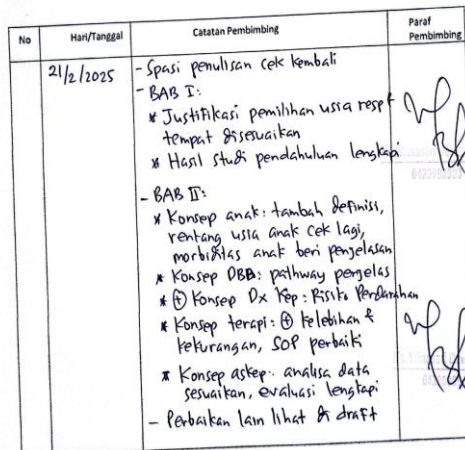 No Hari/Tanggal Catatan Pembimbing Paraf Pembimbing
21/2/2025 - Spasi penulisan cek kembali
- BAB I:
* Justifikasi pemilihan usia resp &
tempat disesuaikan
* Hasil studi pendahuluan lengkapi
- BAB II:
* Konsep anak: tambah definisi,
rentang usia anak cek lagi,
morbiditas anak beri penjelasan
* Konsep DBD: pathway perjelas
* ⊕ Konsep Dx Kep: Risiko Perdarahan
* Konsep terapi: ⊕ kelebihan &
kekurangan, SOP perbaiki
* Konsep askep: analisa data
sesuaikan, evaluasi lengkapi
- Perbaikan lain lihat di draft